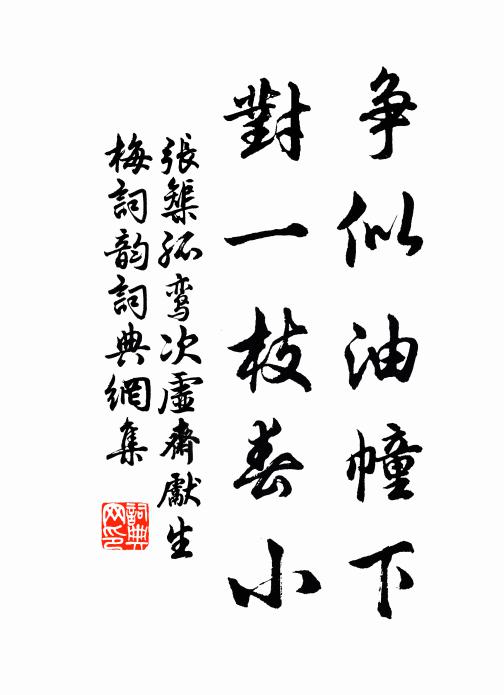 争似油幢下
對一枝春小
張榘孤鸾次虛齋獻生
梅詞韵詞典網集
詞典网印